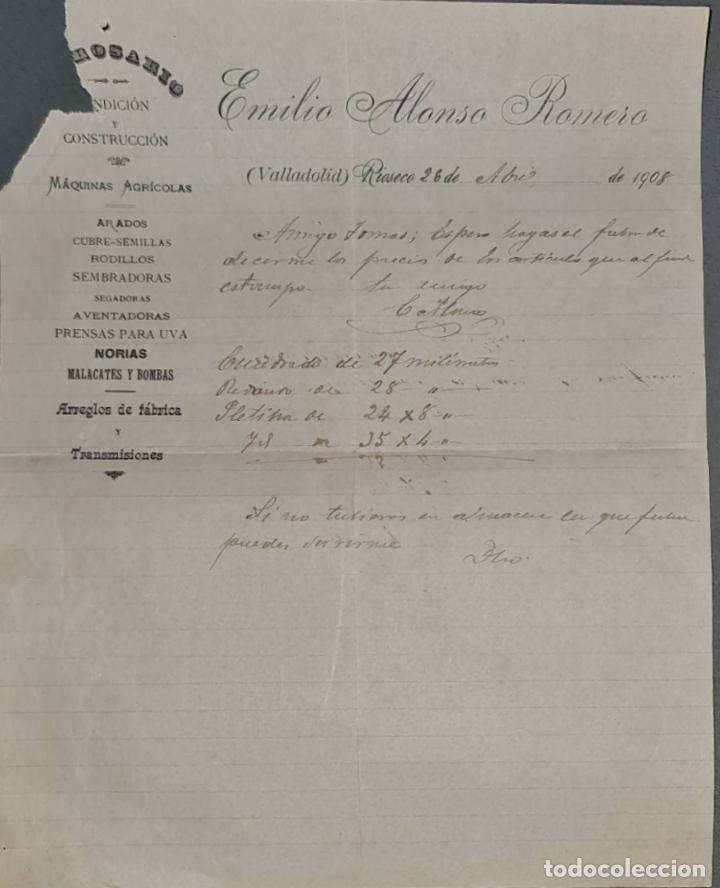 ROSARIO
NDICIÓN
Y
CONSTRUCCIÓN
MÁQUINAS AGRÍCOLAS
ARADOS
CUBRE-SEMILLAS
RODILLOS
SEMBRADORAS
SEGADORAS
AVENTADORAS
PRENSAS PARA UVA
NORIAS
MALACATES Y BOMBAS
Arreglos de fábrica
Y
Transmisiones
Emilio Alonso Romero
(Valladolid) Rioseco 26 de Abril de 1908
Amigo Tomas; Espero hagas el fabor de
decirme los precios de los articulos que al
estampo tu amigo
E Alonso
Cuadrado de 27 milimetros
Redondo de 28 "
Pletina de 24 x 8 "
Id " 35 x 4 "
Si no tubieras en almacen la que
puedes
todocoleccion